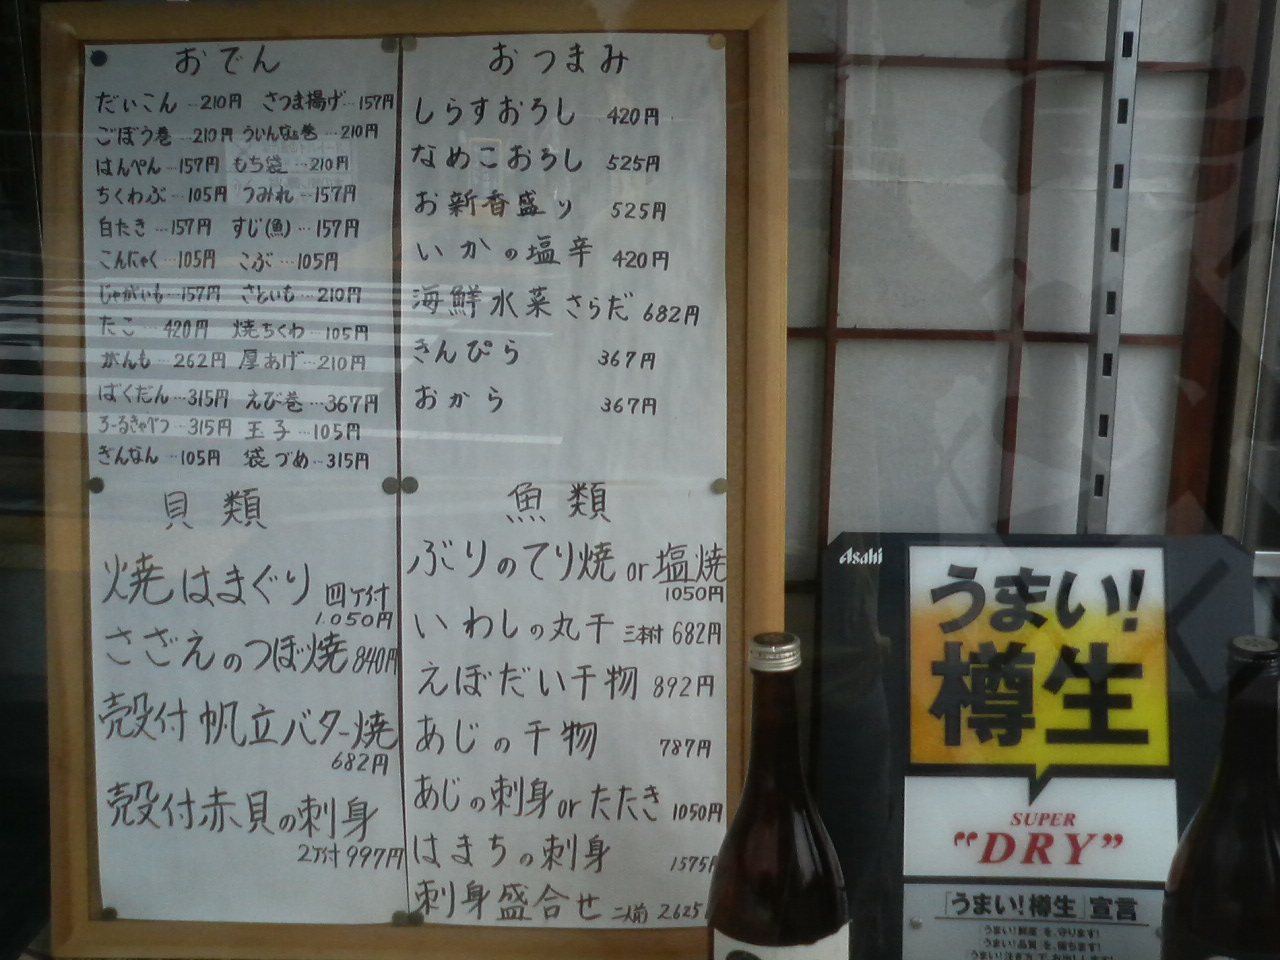 おでん
だいこん…210円 さつま揚げ…157円
ごぼう巻…210円 ういんなー巻…210円
はんぺん…157円 もち袋…210円
ちくわぶ…105円 つみれ…157円
白たき…157円 すじ(魚)…157円
こんにゃく…105円 こぶ…105円
じゃがいも…157円 さといも…210円
たこ…420円 焼ちくわ…105円
がんも…262円 厚あげ…210円
ばくだん…315円 えび巻…367円
ろーるきゃべつ…315円 玉子…105円
ぎんなん…105円 袋づめ…315円
おつまみ
しらすおろし 420円
なめこおろし 525円
お新香盛り 525円
いかの塩辛 420円
海鮮水菜さらだ 682円
きんぴら 367円
おから 367円
貝類
焼はまぐり 四ヶ付
1.050円
さざえのつぼ焼 840円
殻付帆立バター焼
682円
殻付赤貝の刺身
2ヶ付 997円
魚類
ぶりのてり焼 or 塩焼
1050円
いわしの丸干 三本付 682円
えぼだい干物 892円
あじの干物 787円
あじの刺身 or たたき 1050円
はまちの刺身 1575円
刺身盛合せ 二人前 2625
Asahi
うまい!
樽生
SUPER
"DRY"
「うまい!樽生」宣言
「うまい!鮮度」を、守ります!
「うまい!品質」を、